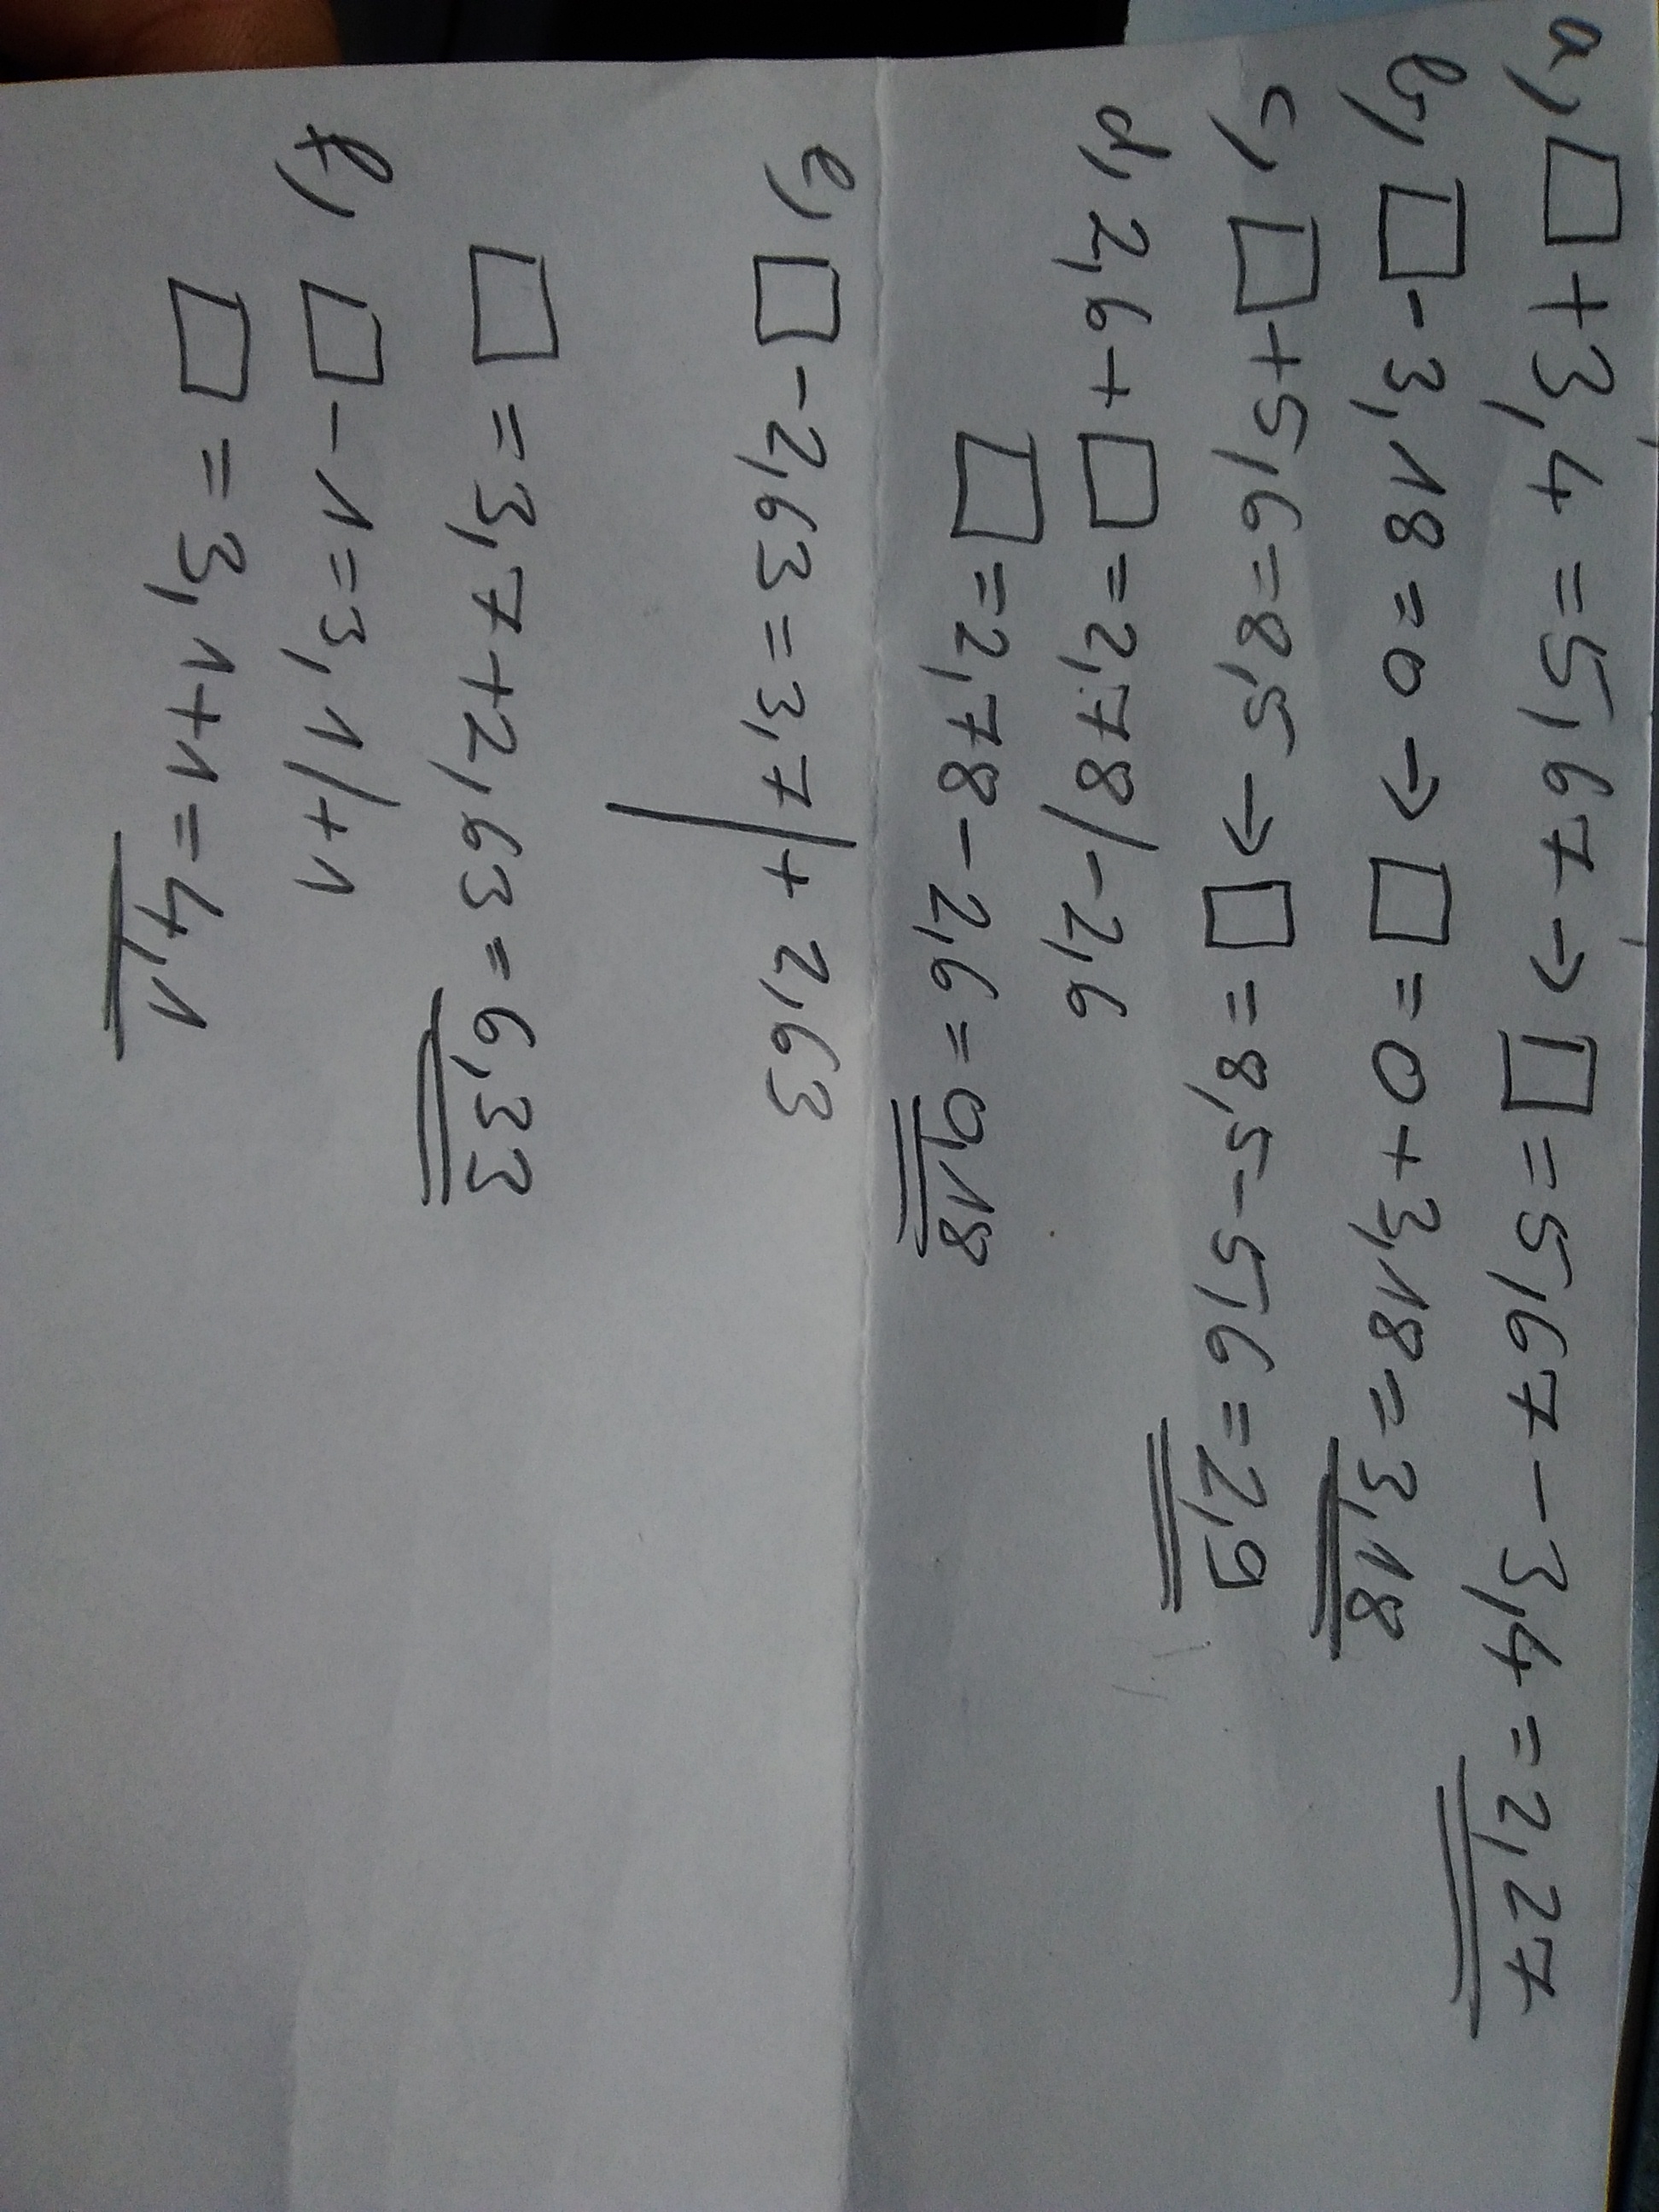 a, □ + 3,4 = 5,67 → □ = 5,67 - 3,4 = 2,27
b, □ - 3,18 = 0 → □ = 0 + 3,18 = 3,18
c, □ + 5,6 = 8,5 → □ = 8,5 - 5,6 = 2,9
d, 2,6 + □ = 2,78 / - 2,6
□ = 2,78 - 2,6 = 0,18
e, □ - 2,63 = 3,7 / + 2,63
□ = 3,7 + 2,63 = 6,33
f, □ - 1 = 3,1 / + 1
□ = 3,1 + 1 = 4,1